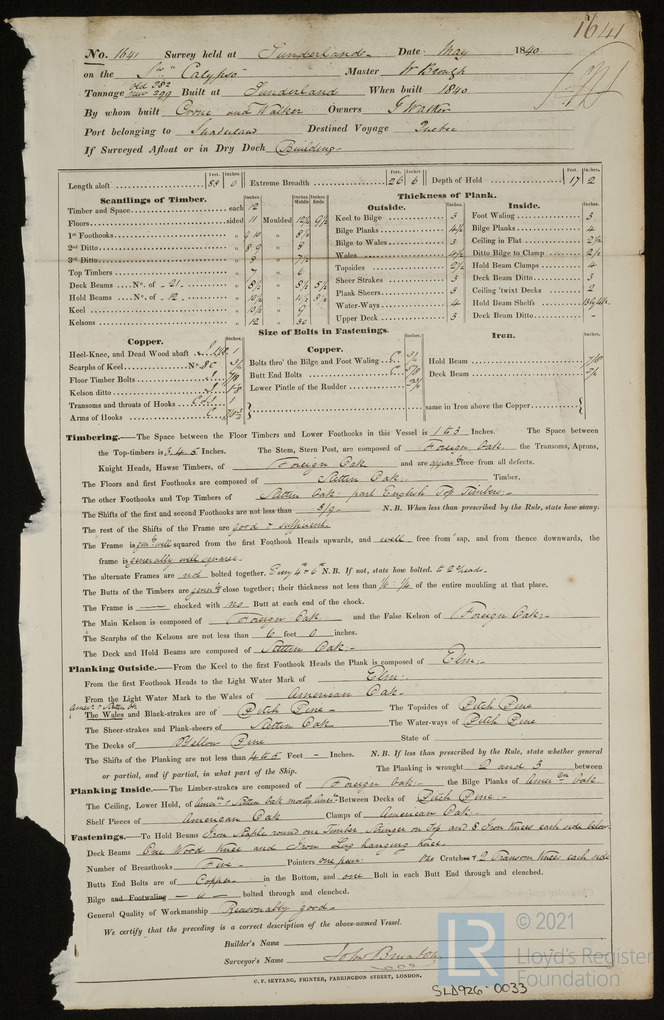 1641
No. 1641 Survey held at Sunderland Date May 1840
on the Calypso Master W Brough
Tonnage old 282 new 299 Built at Sunderland When built 1840
By whom built Crone and Walker Owners G Walker
Port belonging to Sunderland Destined Voyage Quebec
If Surveyed Afloat or in Dry Dock Building
Feet. Inches. Feet. Inches. Feet. Inches.
Length aloft 88 0 Extreme Breadth 26 6 Depth of Hold 17 2
Scantlings of Timber.
Inches. Inches Middle Inches Ends
Timber and Space each 12
Floors sided 11 Moulded 12½ 9½
1st Foothooks „ 9 10 „ 8½
2nd Ditto „ 8 9 „ 8
3rd Ditto „ 8 „ 7½
Top Timbers „ 7 „ 6
Deck Beams No. of 21 „ 8½ „ 8½ 5½
Hold Beams No. of 12 „ 10½ „ 11½ 8½
Keel „ 10½ „ 9
Kelsons „ 12 „ 30
Thickness of Plank.
Outside. Inches.
Keel to Bilge 3
Bilge Planks 4½
Bilge to Wales 3
Wales 4½
Topsides 2½
Sheer Strakes 3
Plank Sheers 3
Water-Ways 4
Upper Deck 3
Inside. Inches.
Foot Waling 3
Bilge Planks 4
Ceiling in Flat 2½
Ditto Bilge to Clamp 2½
Hold Beam Clamps 4
Deck Beam Ditto 3
Ceiling 'twixt Decks 2
Hold Beam Shelfs
Deck Beam Ditto -
Size of Bolts in Fastenings.
Copper. Inches.
Heel-Knee, and Dead Wood abaft 1
Scarphs of Keel No 8 C
Floor Timber Bolts 7/8
Kelson ditto
Transoms and throats of Hooks 1
Arms of Hooks
Copper. Inches.
Bolts thro' the Bilge and Foot Waling C 3/4
Butt End Bolts C 5/8
Lower Pintle of the Rudder 2¾
Iron. Inches.
Hold Beam 7/8
Deck Beam 3/4
same in Iron above the Copper
Timbering.—The Space between the Floor Timbers and Lower Foothooks in this Vessel is 1 to 3 Inches. The Space between
the Top-timbers is 3.4.5 Inches. The Stem, Stern Post, are composed of Foreign Oak the Transoms, Aprons,
Knight Heads, Hawse Timbers, of Foreign Oak and are appar. free from all defects.
The Floors and first Foothooks are composed of Stettin Oak Timber.
The other Foothooks and Top Timbers of Stettin Oak, part English Top Timbers
The Shifts of the first and second Foothooks are not less than 5/9 N.B. When less than prescribed by the Rule, state how many.
The rest of the Shifts of the Frame are good & sufficient
The Frame is gen. well squared from the first Foothook Heads upwards, and well free from sap, and from thence downwards, the
frame is generally well square
The alternate Frames are not bolted together. Every 4th & 6th N.B. If not, state how bolted. to heads
The Butts of the Timbers are gener. close together; their thickness not less than ⅓ ¼ of the entire moulding at that place.
The Frame is — chocked with no Butt at each end of the chock.
The Main Kelson is composed of Foreign Oak and the False Kelson of Foreign Oak
The Scarphs of the Kelsons are not less than 6 feet 0 inches.
The Deck and Hold Beams are composed of Stettin Oak
Planking Outside.—From the Keel to the first Foothook Heads the Plank is composed of Elm
From the first Foothook Heads to the Light Water Mark of Elm
From the Light Water Mark to the Wales of American Oak
Amer. & Stettin Oak
The Wales and Black-strakes are of Pitch Pine The Topsides of Pitch Pine
The Sheer-strakes and Plank-sheers of Stettin Oak The Water-ways of Pitch Pine
The Decks of Yellow Pine State of
The Shifts of the Planking are not less than 4 to 5 Feet - Inches. N.B. If less than prescribed by the Rule, state whether general
or partial, and if partial, in what part of the Ship. The Planking is wrought 2 and 3 between
Planking Inside.—The Limber-strakes are composed of Foreign Oak the Bilge Planks of Amer. an Oak
The Ceiling, Lower Hold, of Amer. & Stettin Oak mostly Amer. Between Decks of Pitch Pine
Shelf Pieces of American Oak Clamps of American Oak
Fastenings.—To Hold Beams Iron Staple round one Timber, Stringer on Top and 8 Iron knees each side below
Deck Beams One Wood Knee and Iron Lug hanging knee
Number of Breasthooks Five Pointers one pair Crutches 2 Transom knees each side
Butts End Bolts are of Copper in the Bottom, and one Bolt in each Butt End through and clenched.
Bilge and Footwaling bolted through and clenched.
General Quality of Workmanship Reasonably good
We certify that the preceding is a correct description of the above-named Vessel.
Builder's Name
Surveyor's Name John Brunton
C. F. SEYFANG, PRINTER, FARRINGDON STREET, LONDON.
SLD926-0033
© 2021
LR
Lloyd's Register
Foundation